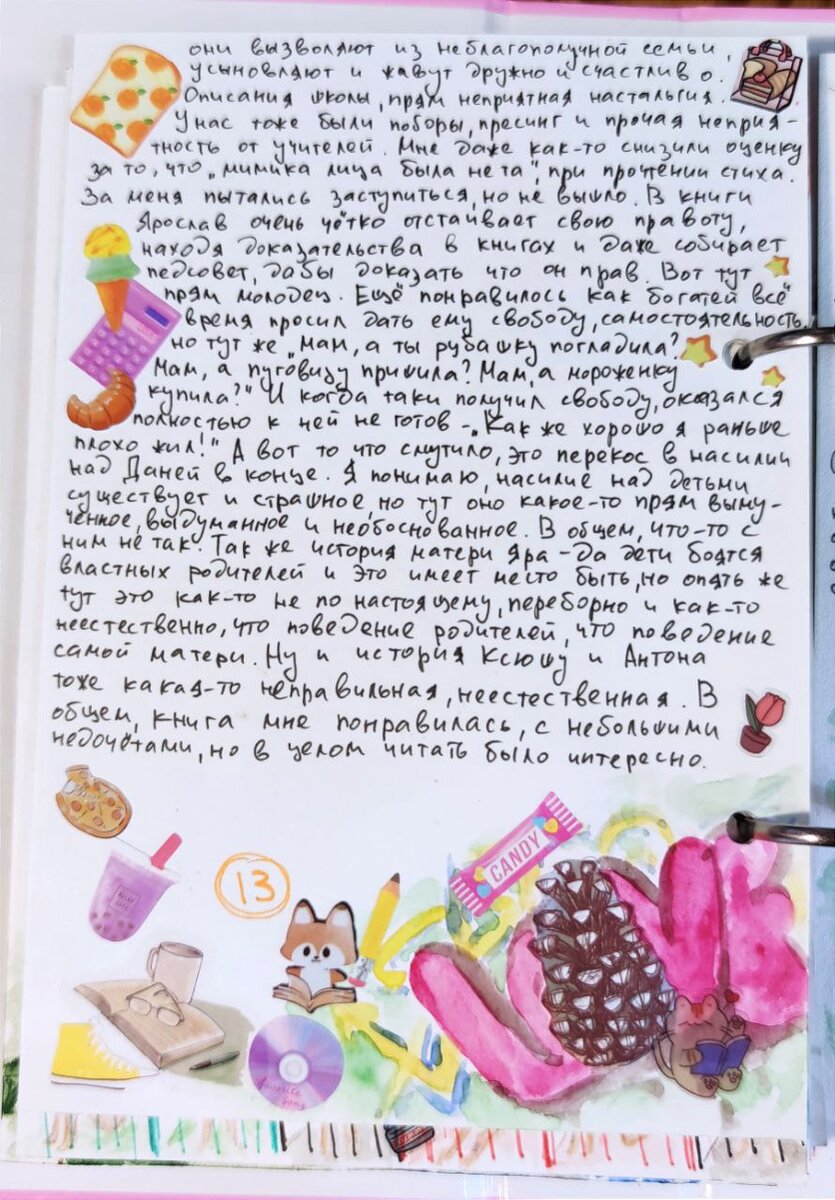 они вызволяют из неблагополучной семьи,
усыновляют и живут дружно и счастливо.
Описания школы, прям неприятная настальгия.
У нас тоже были поборы, пресинг и прочая неприя-
тность от учителей. Мне даже как-то снизили оценку
за то, что „мимика лица была не та", при прочтении стиха.
За меня пытались заступиться, но не вышло. В книги
Ярослав очень чётко отстаивает свою правоту,
находя доказательства в книгах и даже собирает
педсовет, дабы доказать что он прав. Вот тут
прям молодец. Ещё понравилось как богатей всё
время просил дать ему свободу, самостоятельность
но тут же „Мам, а ты рубашку погладила?
Мам, а пуговизу пришила? Мам, а мороженку
купила?" И когда таки получил свободу, оказался
полностью к ней не готов - „Как же хорошо я раньше
плохо жил!" А вот то что смутило, это перекос в насилии
над Даней в конце. Я понимаю, насилие над детьми
существует и страшное, но тут оно какое-то прям выму-
ченное, выдуманное и необоснованное. В общем, что-то с
ним не так. Так же история матери Яра - Да дети боятся
властных родителей и это имеет место быть, но опять же
тут это как-то не по настоящему, переборно и как-то
неестественно, что поведение родителей, что поведение
самой матери. Ну и история Ксюшу и Антона
тоже какая-то неправильная, неестественная. В
общем, книга мне понравилась, с небольшими
недочётами, но в целом читать было интересно.
CANDY
13
LOVE